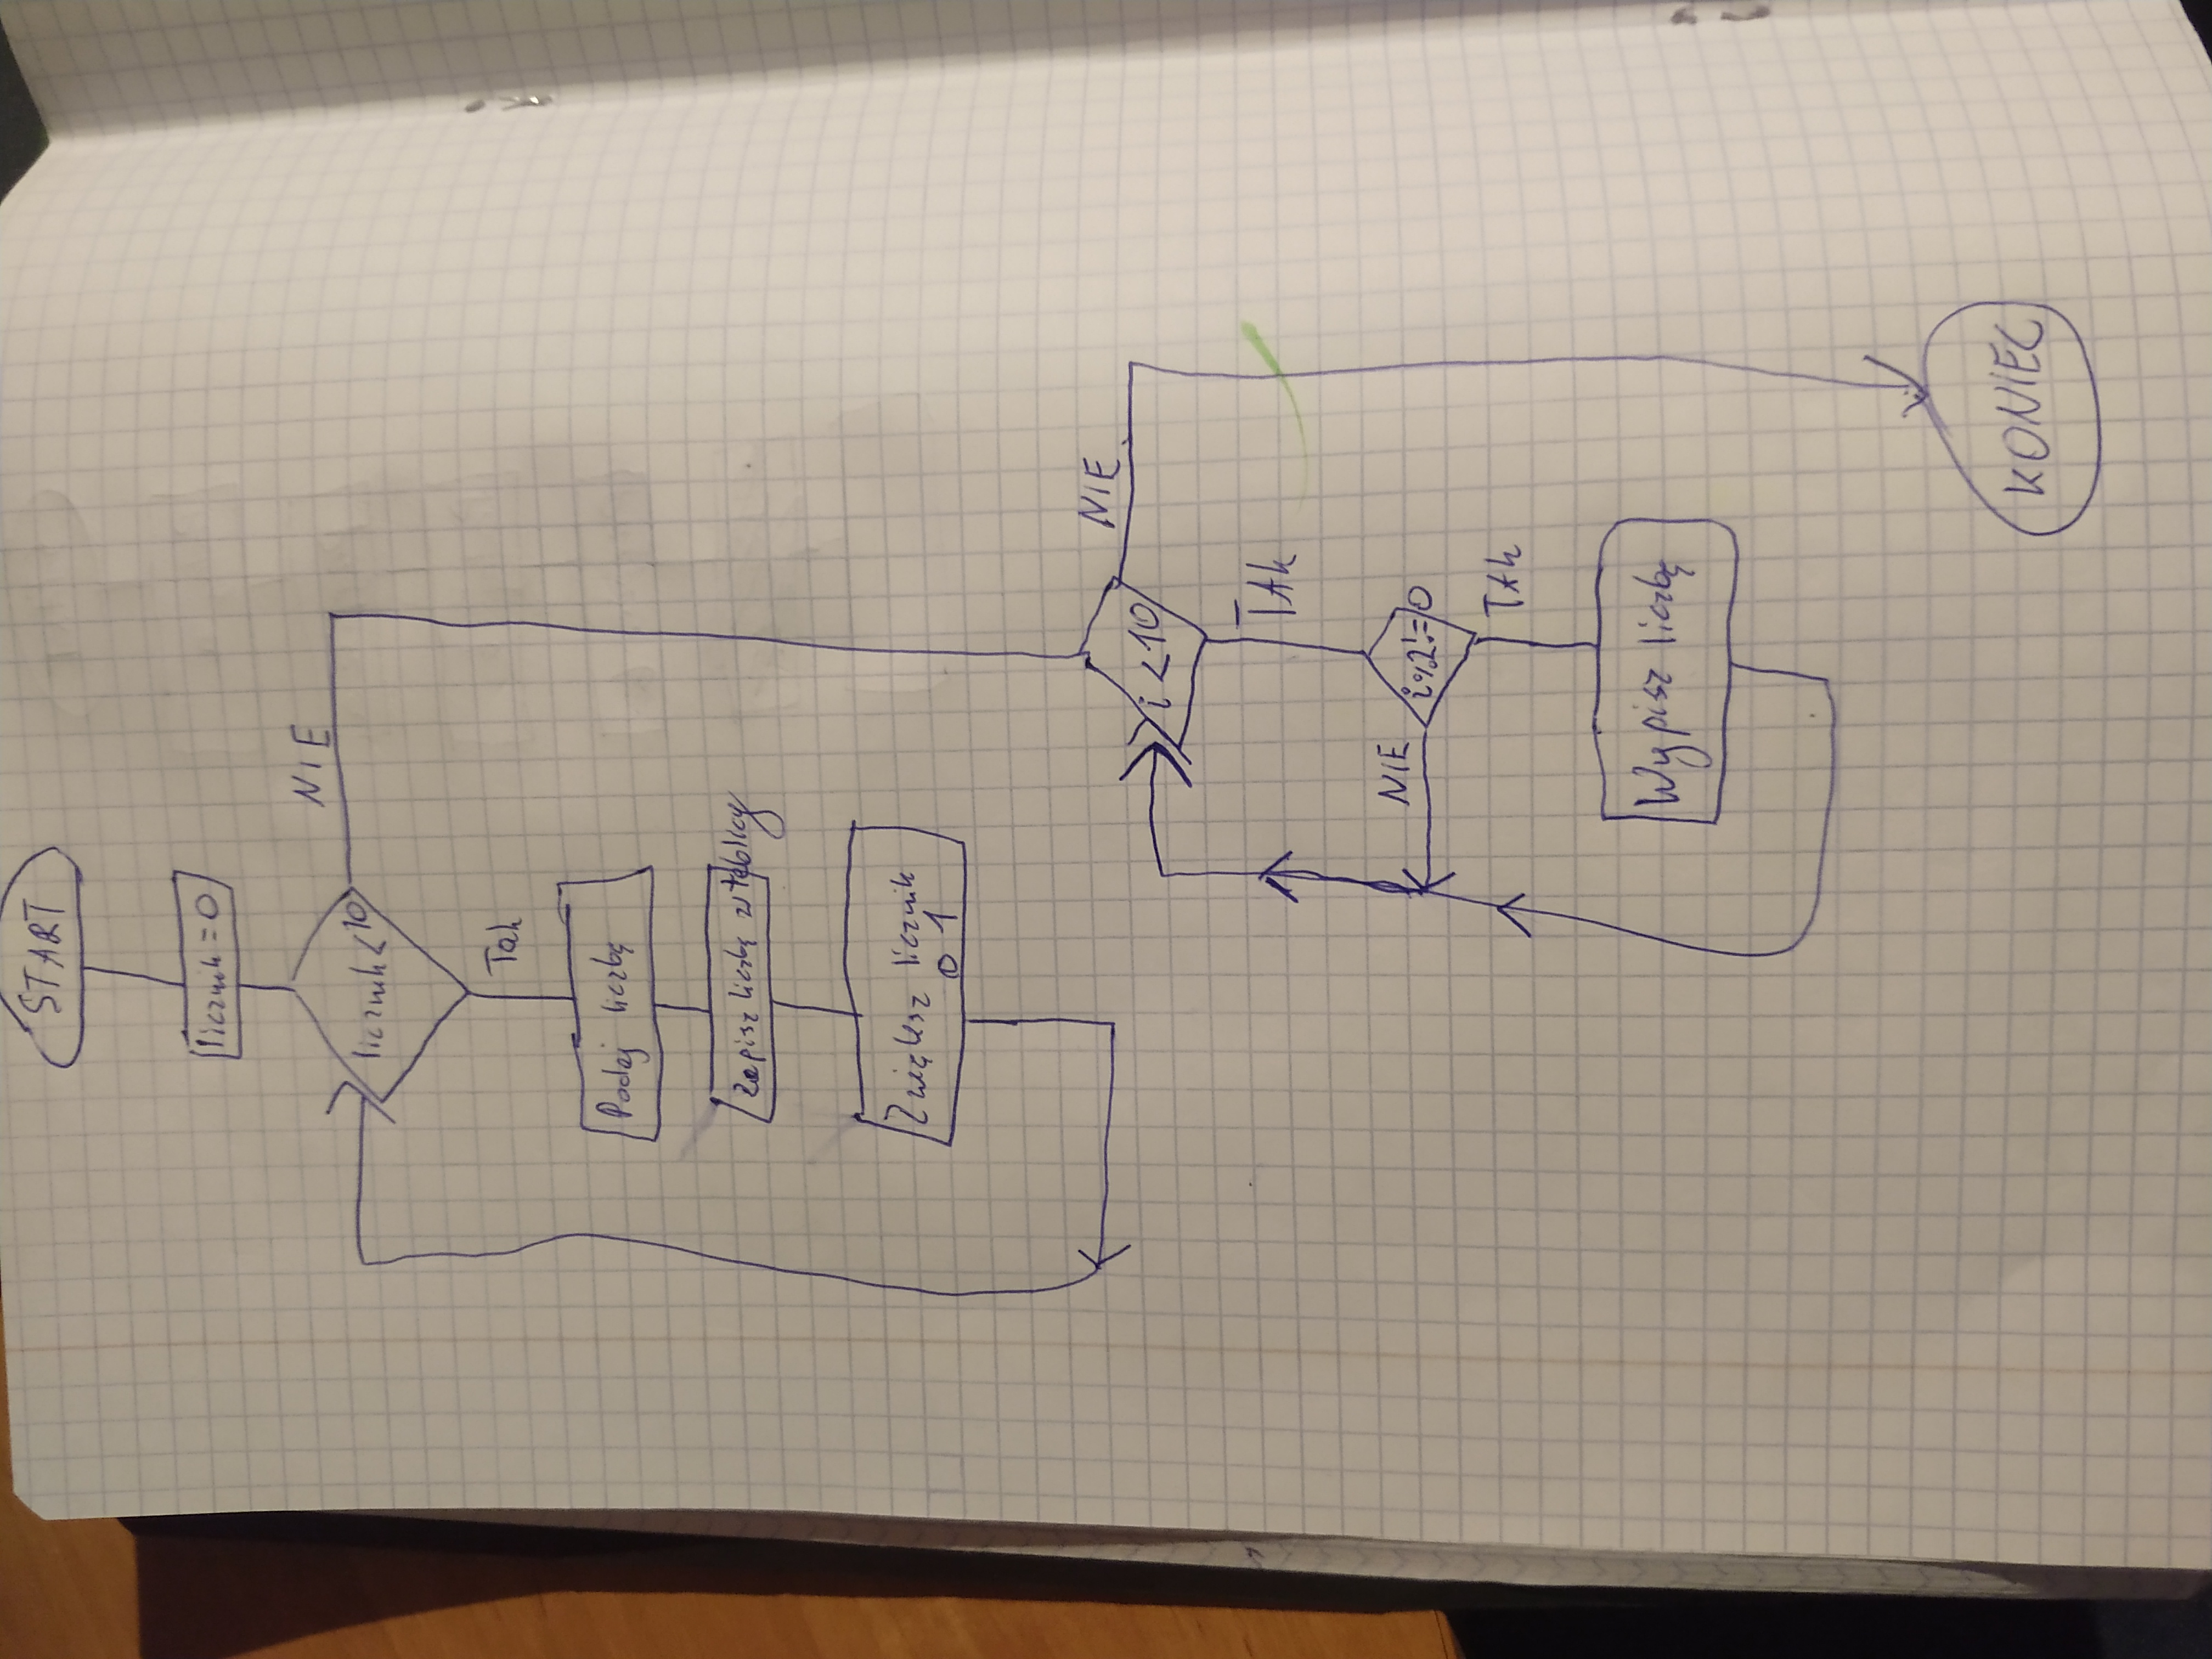 START
licznik = 0
licznik < 10
NIE
Tak
Podaj liczbę
Zapisz liczbę w tablicy
Zwiększ licznik
o 1
i < 10
NIE
TAk
i%2!=0
NIE
TAk
Wypisz liczbę
KONIEC